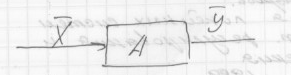 X̅ A y̅